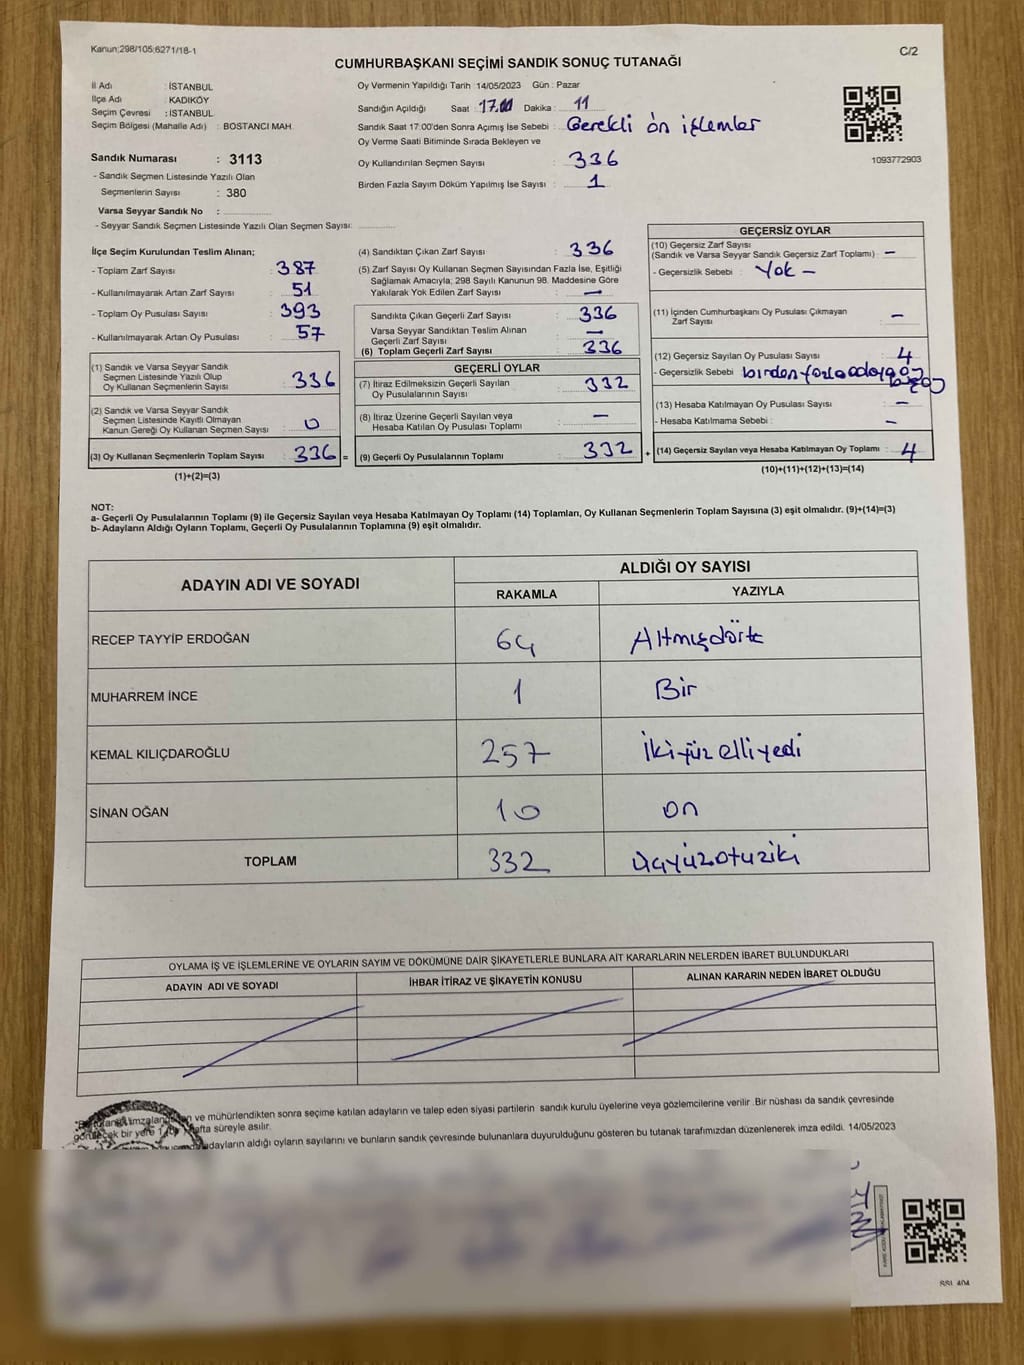 Kanun;298/105;6271/18-1
C/2
CUMHURBAŞKANI SEÇİMİ SANDIK SONUÇ TUTANAĞI
İl Adı : İSTANBUL
İlçe Adı : KADIKÖY
Seçim Çevresi : İSTANBUL
Seçim Bölgesi (Mahalle Adı) : BOSTANCI MAH.
Sandık Numarası : 3113
- Sandık Seçmen Listesinde Yazılı Olan
Seçmenlerin Sayısı : 380
Varsa Seyyar Sandık No :
- Seyyar Sandık Seçmen Listesinde Yazılı Olan Seçmen Sayısı:
Oy Vermenin Yapıldığı Tarih : 14/05/2023 Gün : Pazar
Sandığın Açıldığı Saat : 17.00 Dakika : 11
Sandık Saat 17:00'den Sonra Açımış İse Sebebi : Gerekli ön işlemler
Oy Verme Saati Bitiminde Sırada Bekleyen ve
Oy Kullandırılan Seçmen Sayısı : 336
Birden Fazla Sayım Döküm Yapılmış İse Sayısı : 1
1093772903
İlçe Seçim Kurulundan Teslim Alınan;
- Toplam Zarf Sayısı : 387
- Kullanılmayarak Artan Zarf Sayısı : 51
- Toplam Oy Pusulası Sayısı : 393
- Kullanılmayarak Artan Oy Pusulası : 57
(1) Sandık ve Varsa Seyyar Sandık
Seçmen Listesinde Yazılı Olup
Oy Kullanan Seçmenlerin Sayısı : 336
(2) Sandık ve Varsa Seyyar Sandık
Seçmen Listesinde Kayıtlı Olmayan
Kanun Gereği Oy Kullanan Seçmen Sayısı : 0
(3) Oy Kullanan Seçmenlerin Toplam Sayısı : 336 =
(1)+(2)=(3)
(4) Sandıktan Çıkan Zarf Sayısı : 336
(5) Zarf Sayısı Oy Kullanan Seçmen Sayısından Fazla İse, Eşitliği
Sağlamak Amacıyla; 298 Sayılı Kanunun 98. Maddesine Göre
Yakılarak Yok Edilen Zarf Sayısı : —
Sandıkta Çıkan Geçerli Zarf Sayısı : 336
Varsa Seyyar Sandıktan Teslim Alınan
Geçerli Zarf Sayısı : —
(6) Toplam Geçerli Zarf Sayısı : 336
GEÇERLİ OYLAR
(7) İtiraz Edilmeksizin Geçerli Sayılan
Oy Pusulasının Sayısı : 332
(8) İtiraz Üzerine Geçerli Sayılan veya
Hesaba Katılan Oy Pusulası Toplamı : —
(9) Geçerli Oy Pusulalarının Toplamı : 332 +
GEÇERSİZ OYLAR
(10) Geçersiz Zarf Sayısı
(Sandık ve Varsa Seyyar Sandık Geçersiz Zarf Toplamı) : —
- Geçersizlik Sebebi : Yok —
(11) İçinden Cumhurbaşkanı Oy Pusulası Çıkmayan
Zarf Sayısı : —
(12) Geçersiz Sayılan Oy Pusulası Sayısı : 4
- Geçersizlik Sebebi birden fazla adaya oy
(13) Hesaba Katılmayan Oy Pusulası Sayısı : —
- Hesaba Katılmama Sebebi : —
(14) Geçersiz Sayılan veya Hesaba Katılmayan Oy Toplamı : 4
(10)+(11)+(12)+(13)=(14)
NOT:
a- Geçerli Oy Pusulalarının Toplamı (9) ile Geçersiz Sayılan veya Hesaba Katılmayan Oy Toplamı (14) Toplamları, Oy Kullanan Seçmenlerin Toplam Sayısına (3) eşit olmalıdır. (9)+(14)=(3)
b- Adayların Aldığı Oyların Toplamı, Geçerli Oy Pusulalarının Toplamına (9) eşit olmalıdır.
ADAYIN ADI VE SOYADI
ALDIĞI OY SAYISI
RAKAMLA YAZIYLA
RECEP TAYYİP ERDOĞAN 64 Altmışdört
MUHARREM İNCE 1 Bir
KEMAL KILIÇDAROĞLU 257 İkiyüz elliyedi
SİNAN OĞAN 10 on
TOPLAM 332 üçyüzotuziki
OYLAMA İŞ VE İŞLEMLERİNE VE OYLARIN SAYIM VE DÖKÜMÜNE DAİR ŞİKAYETLERLE BUNLARA AİT KARARLARIN NELERDEN İBARET BULUNDUKLARI
ADAYIN ADI VE SOYADI İHBAR İTİRAZ VE ŞİKAYETİN KONUSU ALINAN KARARIN NEDEN İBARET OLDUĞU
ve mühürlendikten sonra seçime katılan adayların ve talep eden siyasi partilerin sandık kurulu üyelerine veya gözlemcilerine verilir .Bir nüshası da sandık çevresinde
bir yere hafta süreyle asılır.
adayların aldığı oyların sayılarını ve bunların sandık çevresinde bulunanlara duyurulduğunu gösteren bu tutanak tarafımızdan düzenlenerek imza edildi. 14/05/2023
SSL 404